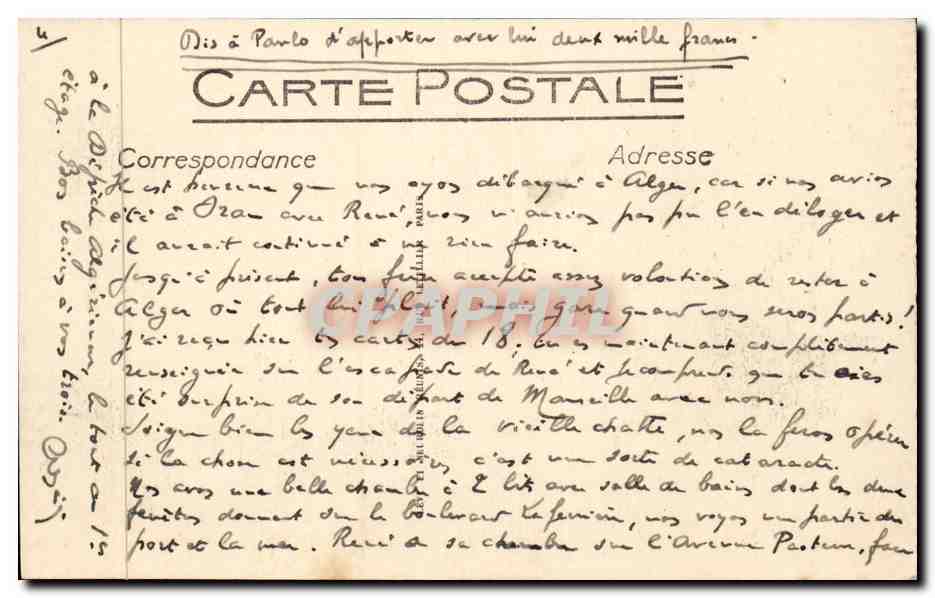 4/
Dis à Paulo d'apporter avec lui deux mille francs.
CARTE POSTALE
Correspondance
Adresse
Il est heureux que nos ayos débarqué à Alger, car si nos avios
été à Oran avec René, nous n'aurions pas pu l'en déloger et
il aurait continué à ne rien faire.
Jusqu'à présent, ton frère accepte assez volontiers de rester à
Alger où tout lui plaît, mais gare quand nous seros partis !
J'ai reçu hier tes cartes du 18, tu es maintenant complètement
renseignée sur l'escapade de René et je comprends que tu aies
été surprise de son départ de Marseille avec nous.
Soigne bien les yeux de la vieille chatte, nos la feros opérer
si la chose est nécessaire, c'est une sorte de cataracte.
Nos avos une belle chambre à 2 lits avec salle de bains dont les deux
fenêtres donnent sur le boulevard Laferrière, nos voyos une partie du
port et la mer. René a sa chambre sur l'Avenue Pasteur, face
à la Dépêche Algérienne, le tout au 1er
étage. Bos baisers à vos trois.
PARIS
CPAPHIL